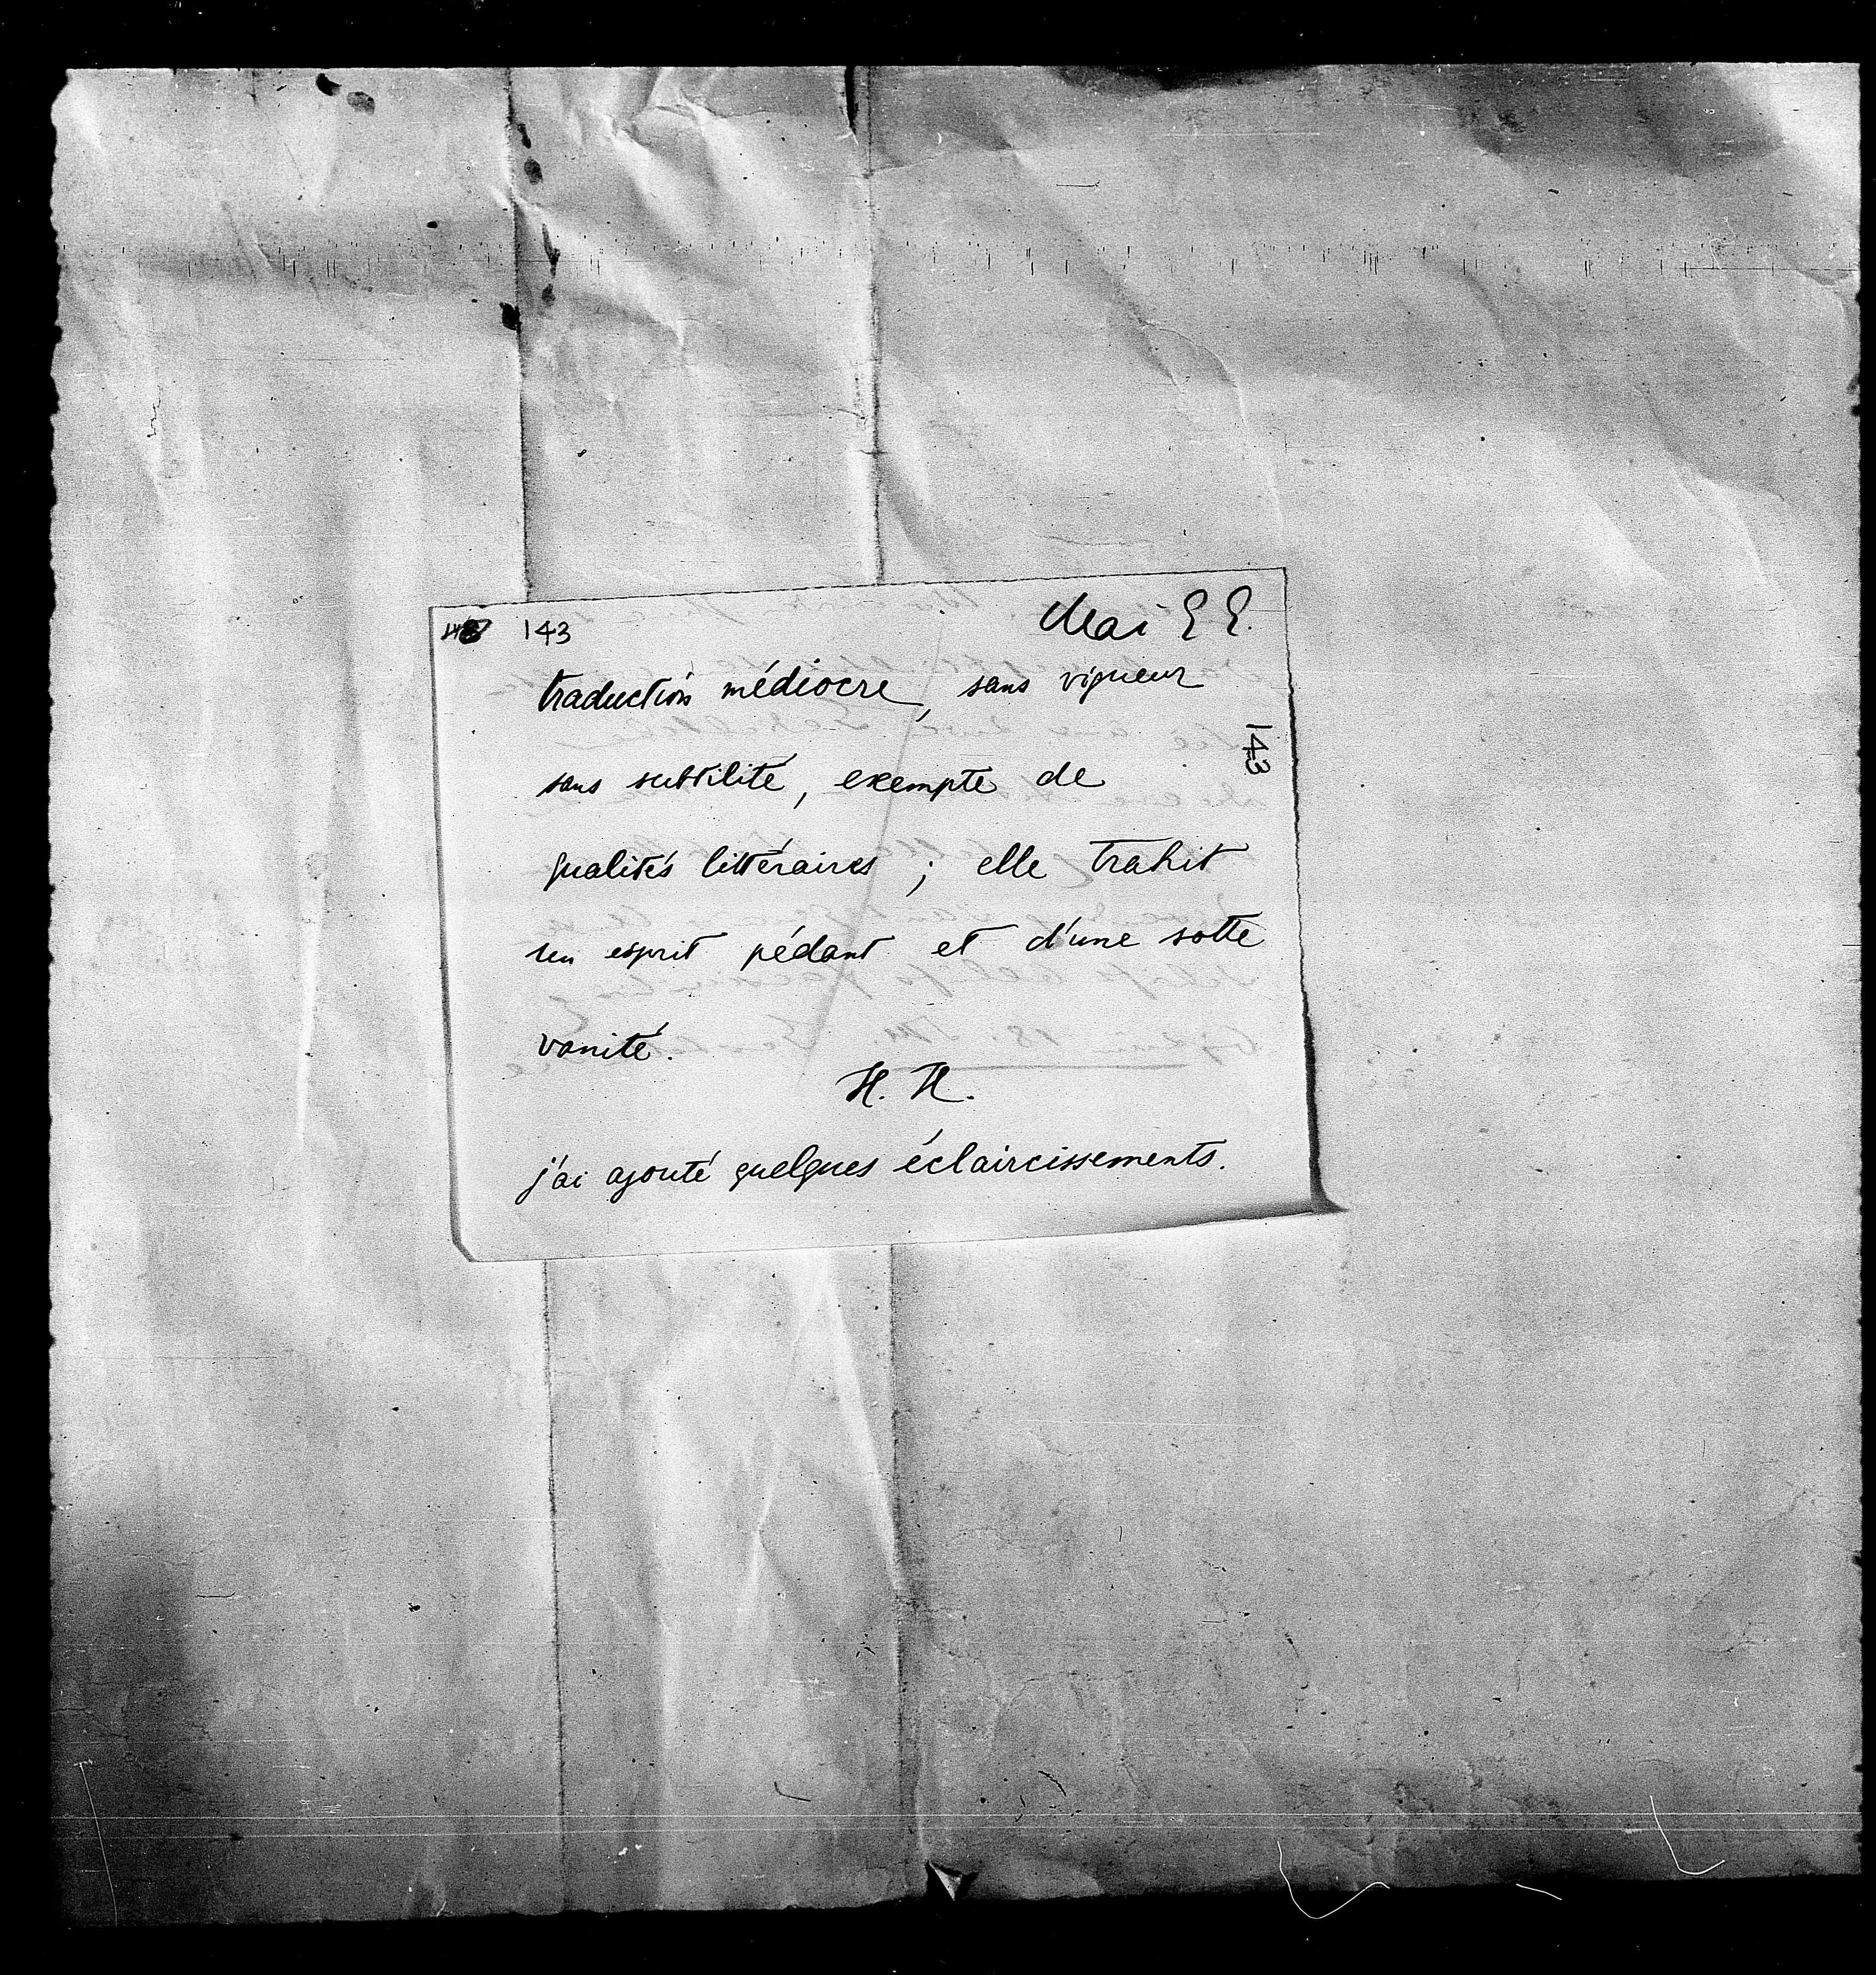 143 Mai EE.
143
traduction médiocre, sans vigueur
sans subtilité, exempte de
qualités littéraires ; elle trahit
un esprit pédant et d'une sotte
vanité.
H. H.
j'ai ajouté quelques éclaircissements.